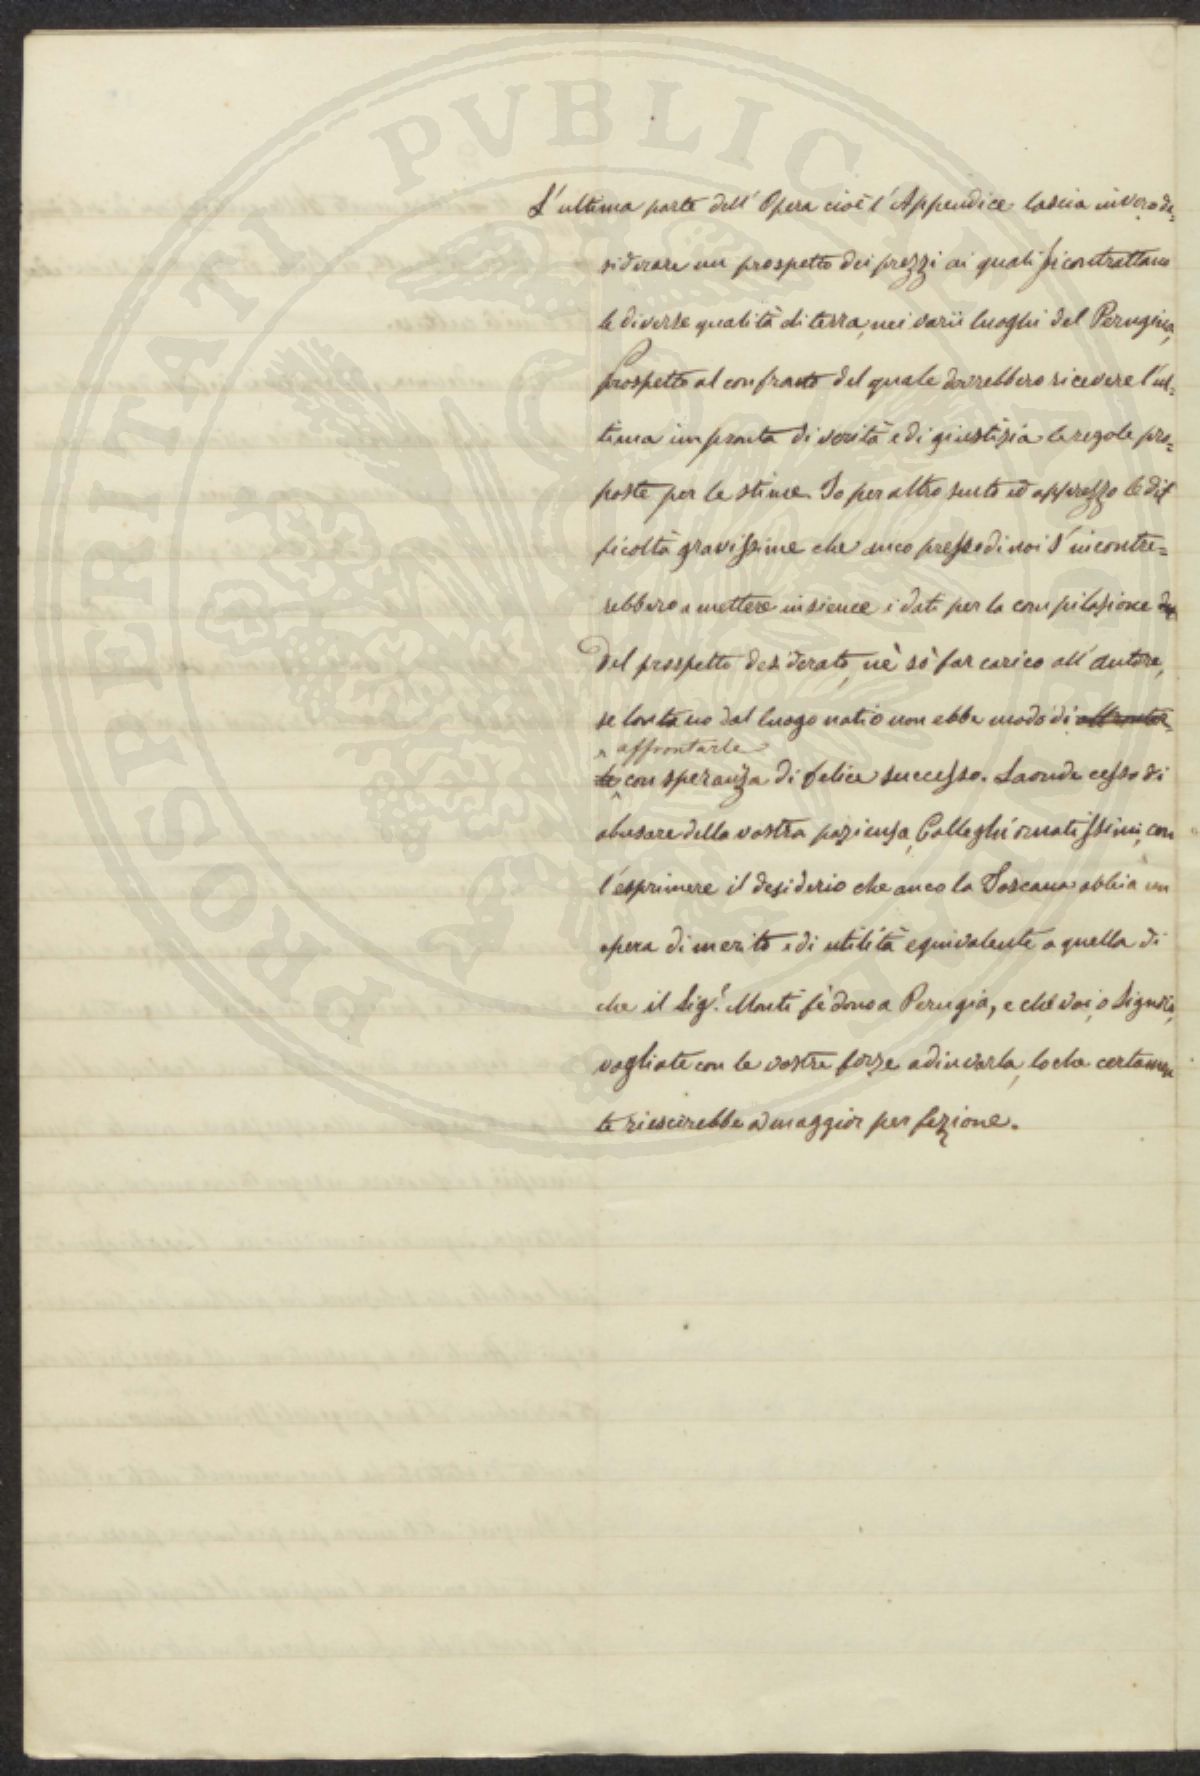 PROSPERITATI PVBLICAE AVGENDAE
L'ultima parte dell'Opera cioè l'Appendice lascia in vero de=
siderare un prospetto dei prezzi ai quali si contrattano
le diverse qualità di terra, nei varii luoghi del Perugino,
prospetto al confronto del quale dovrebbero ricevere l'ul=
tima impronta di verità e di giustizia le regole pro=
poste per le stime. Io per altro sento ed apprezzo le dif
ficoltà gravissime che anco presso di noi s'incontre=
rebbero a mettere insieme i dati per la compilazione
del prospetto desiderato, nè sò far carico all'autore,
se lontano dal luogo natio non ebbe modo di affrontar=
affrontarle
le con speranza di felice successo. Laonde cesso di
abusare della vostra pazienza, Colleghi ornatissimi, con
l'esprimere il desiderio che anco la Toscana abbia un
opera di merito e di utilità equivalente a quella di
che il Sig.r Monti fè dono a Perugia, e che voi, o Signori,
vogliate con le vostre forze adiuvarla, lo che certamen
te riescirebbe a maggior perfezione.